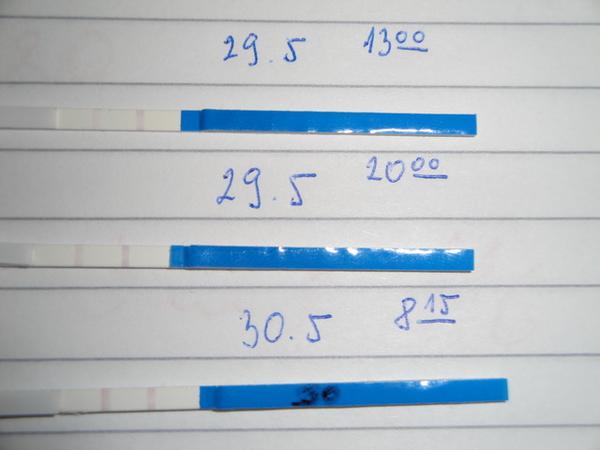 29.5 13 00
29.5 20 00
30.5 8 15